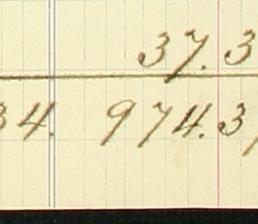 37. 3
34. 974.3